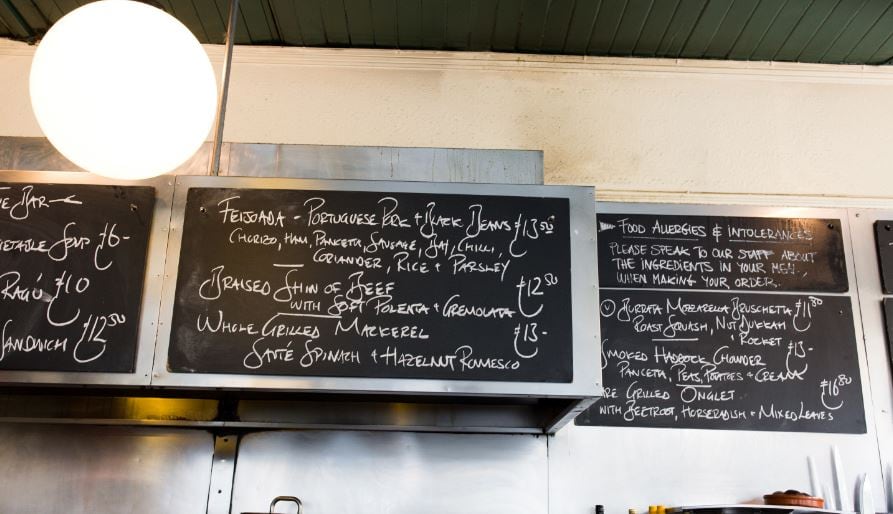 Bar
Soup £6-
Ragú £10
Sandwich £12.50
Feijoada - Portuguese Pork + Black Beans £13.50
Chorizo, Ham, Panceta, Sausage, Bay, Chilli,
Coriander, Rice + Parsley
Braised Shin of Beef £12.50
with Soft Polenta + Gremolata
Whole Grilled Mackerel £13-
Sauté Spinach + Hazelnut Romesco
Food Allergies & Intolerances
Please speak to our staff about
the ingredients in your meal,
when making your order.
V Burrata Mozzarella Bruschetta £11.80
Roast Squash, Nut Dukkah
+ Rocket
Smoked Haddock Chowder £13-
Panceta, Peas, Potatoes + Cream
Grilled Onglet £16.80
with Beetroot, Horseradish + Mixed Leaves